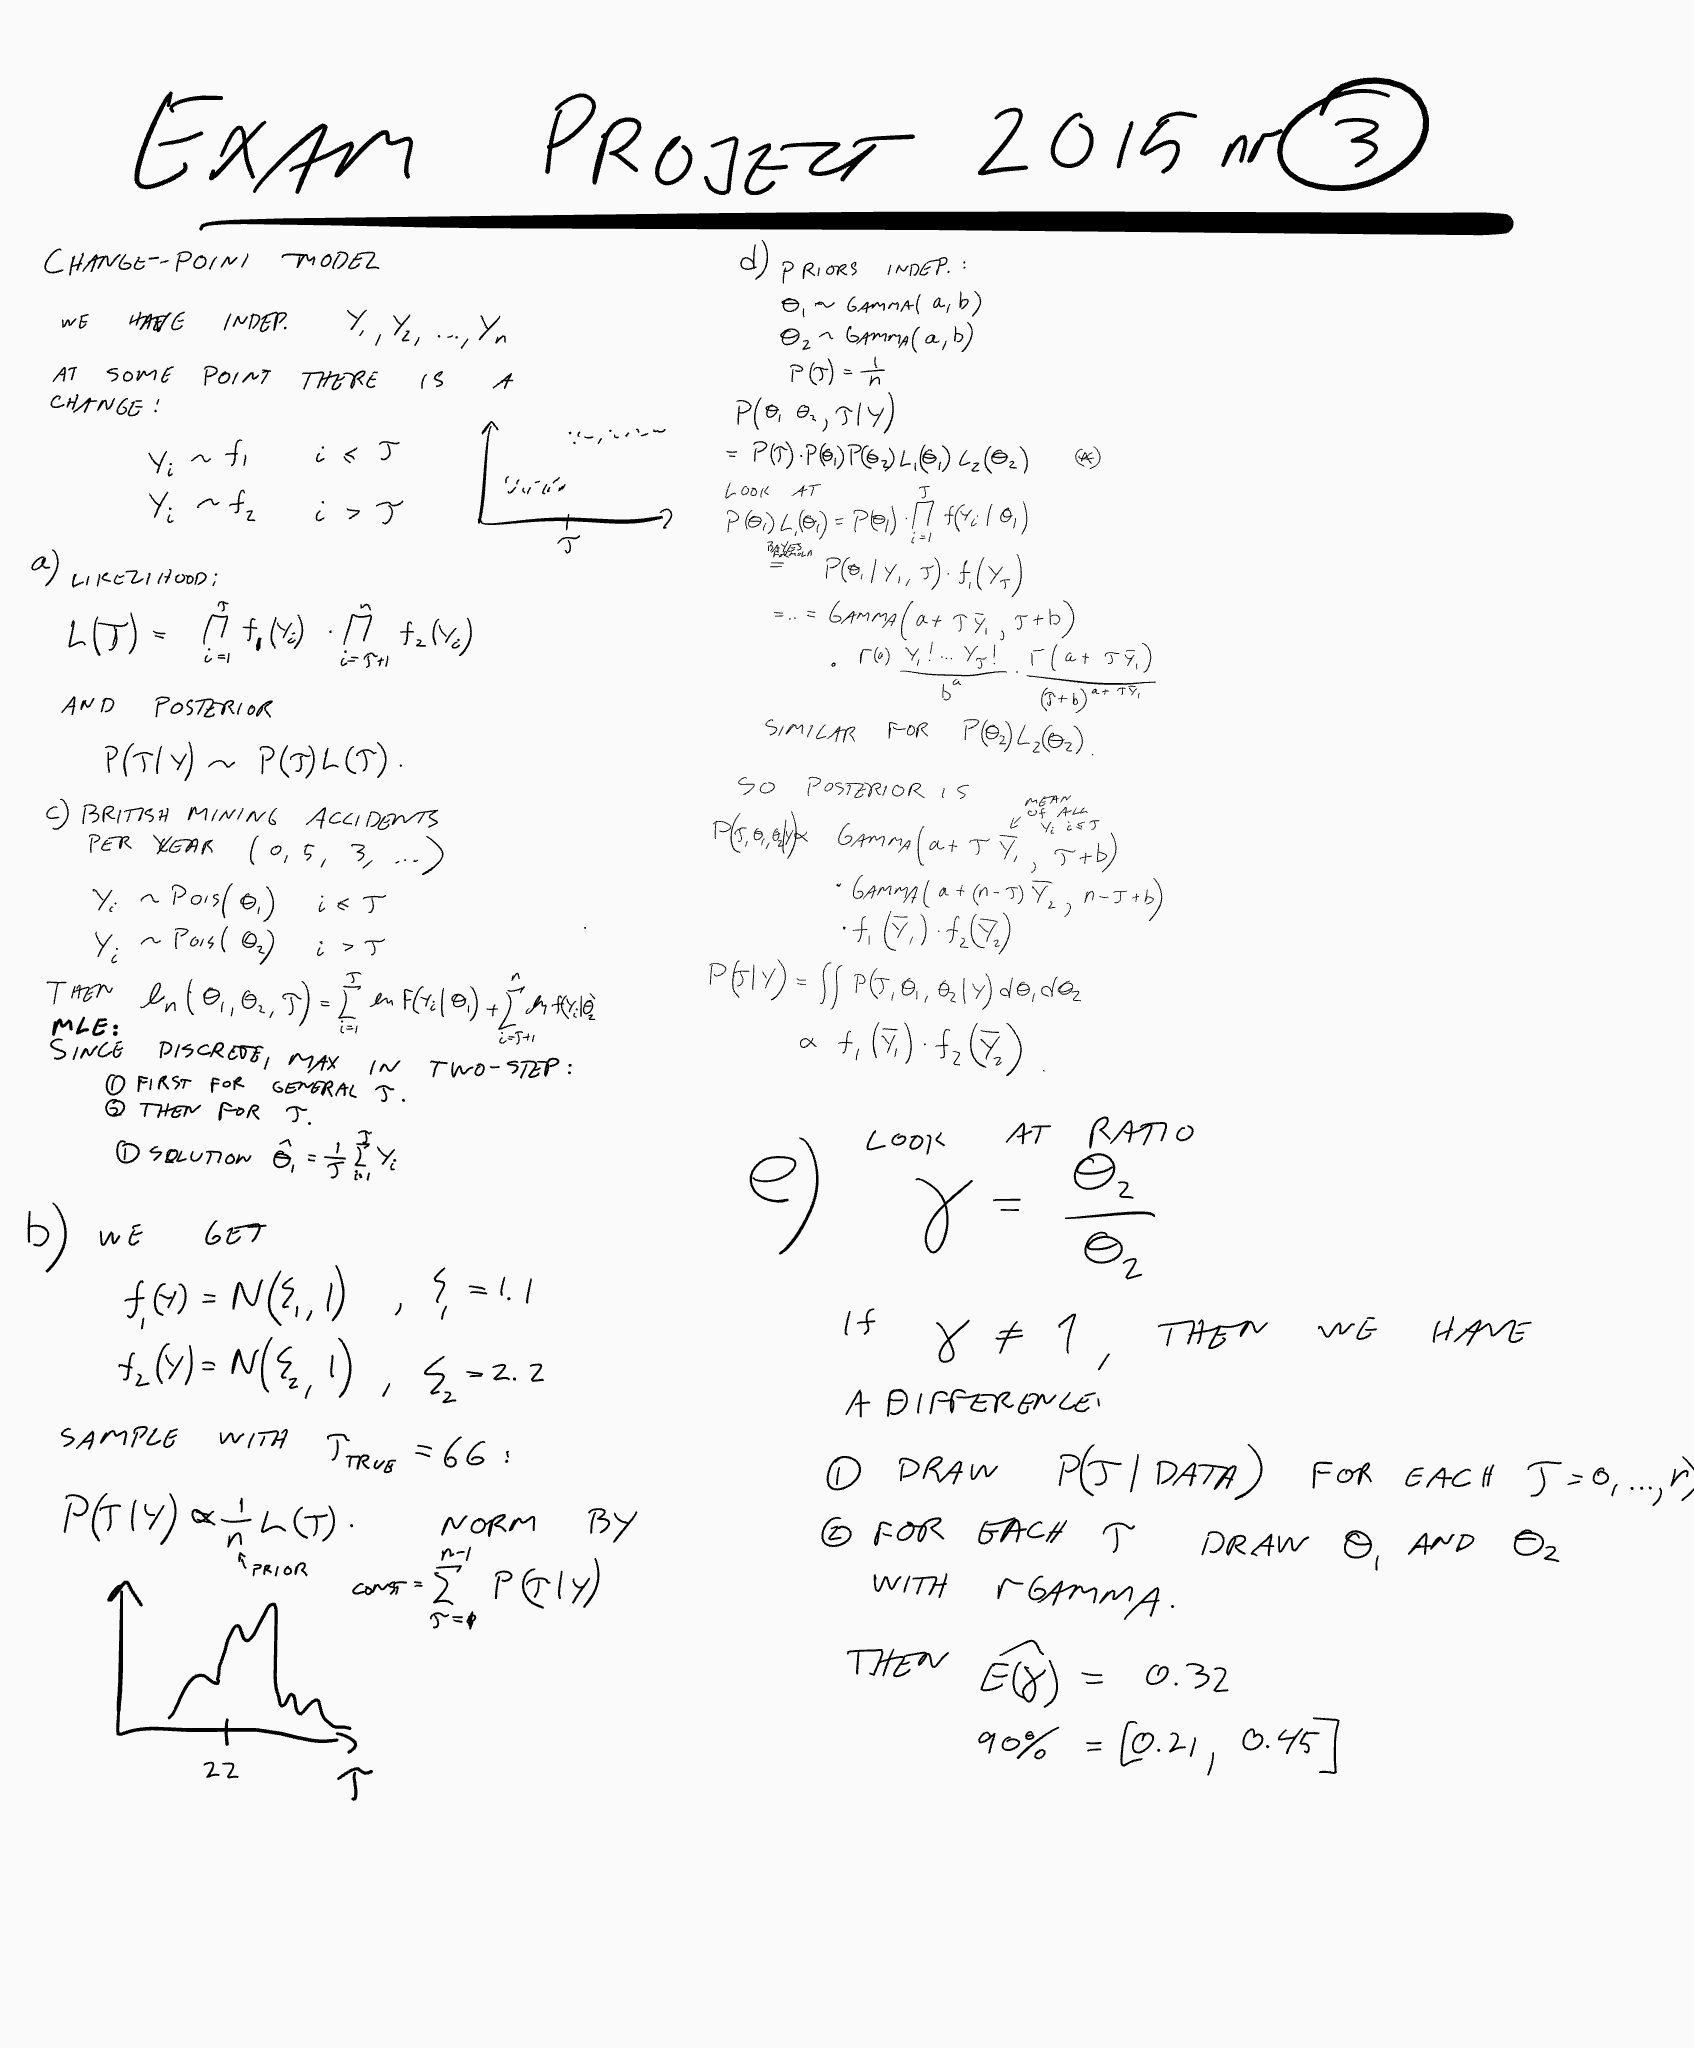 EXAM PROJECT 2015 nr 3
CHANGE-POINT MODEL
WE HAVE INDEP. Y₁, Y₂, ..., Yₙ
AT SOME POINT THERE IS A
CHANGE!
Yᵢ ~ f₁ i ≤ J
Yᵢ ~ f₂ i > J
J
a) LIKELIHOOD:
L(J) = ∏_{i=1}^{J} f₁(Yᵢ) · ∏_{i=J+1}^{n} f₂(Yᵢ)
AND POSTERIOR
P(J|Y) ~ P(J)L(J).
c) BRITISH MINING ACCIDENTS
PER YEAR (0, 5, 3, ...)
Yᵢ ~ POIS(θ₁) i ≤ J
Yᵢ ~ POIS(θ₂) i > J
THEN ℓₙ(θ₁, θ₂, J) = ∑_{i=1}^{J} ln F(Yᵢ|θ₁) + ∑_{i=J+1}^{n} ln f(Yᵢ|θ₂
MLE:
SINCE DISCRETE, MAX IN TWO-STEP:
① FIRST FOR GENERAL J.
② THEN FOR J.
① SOLUTION θ̂₁ = 1/J ∑_{i=1}^{J} Yᵢ
b) WE GET
f₁(Y) = N(ξ₁, 1) , ξ₁ = 1.1
f₂(Y) = N(ξ₂, 1) , ξ₂ = 2.2
SAMPLE WITH J_TRUE = 66:
P(J|Y) ∝ 1/n L(J). NORM BY
PRIOR
CONST = ∑_{J=1}^{n-1} P(J|Y)
22
J
d) PRIORS INDEP.:
θ₁ ~ GAMMA(a, b)
θ₂ ~ GAMMA(a, b)
P(J) = 1/n
P(θ₁ θ₂, J|Y)
= P(J)·P(θ₁)P(θ₂)L₁(θ₁)L₂(θ₂) (*)
LOOK AT
P(θ₁)L₁(θ₁) = P(θ₁)·∏_{i=1}^{J} f(Yᵢ|θ₁)
BAYES FORMULA
= P(θ₁|Y₁, J)·f₁(Y_J)
= .. = GAMMA(a + JȲ₁, J+b)
· Γ(a) Y₁!...Y_J! / b^a · Γ(a + JȲ₁) / (J+b)^{a+JȲ₁}
SIMILAR FOR P(θ₂)L₂(θ₂).
SO POSTERIOR IS
MEAN
OF ALL
Yᵢ i≤J
P(J, θ₁, θ₂|Y) ∝ GAMMA(a + J Ȳ₁, J+b)
· GAMMA(a + (n-J)Ȳ₂, n-J+b)
· f₁(Ȳ₁)·f₂(Ȳ₂)
P(J|Y) = ∫∫ P(J, θ₁, θ₂|Y) dθ₁dθ₂
∝ f₁(Ȳ₁)·f₂(Ȳ₂).
e) LOOK AT RATIO
γ = θ₂/θ₂
If γ ≠ 1, THEN WE HAVE
A DIFFERENCE.
① DRAW P(J|DATA) FOR EACH J=0,...,n
② FOR EACH J DRAW θ₁ AND θ₂
WITH rGAMMA.
THEN Ê(γ) = 0.32
90% = [0.21, 0.45]